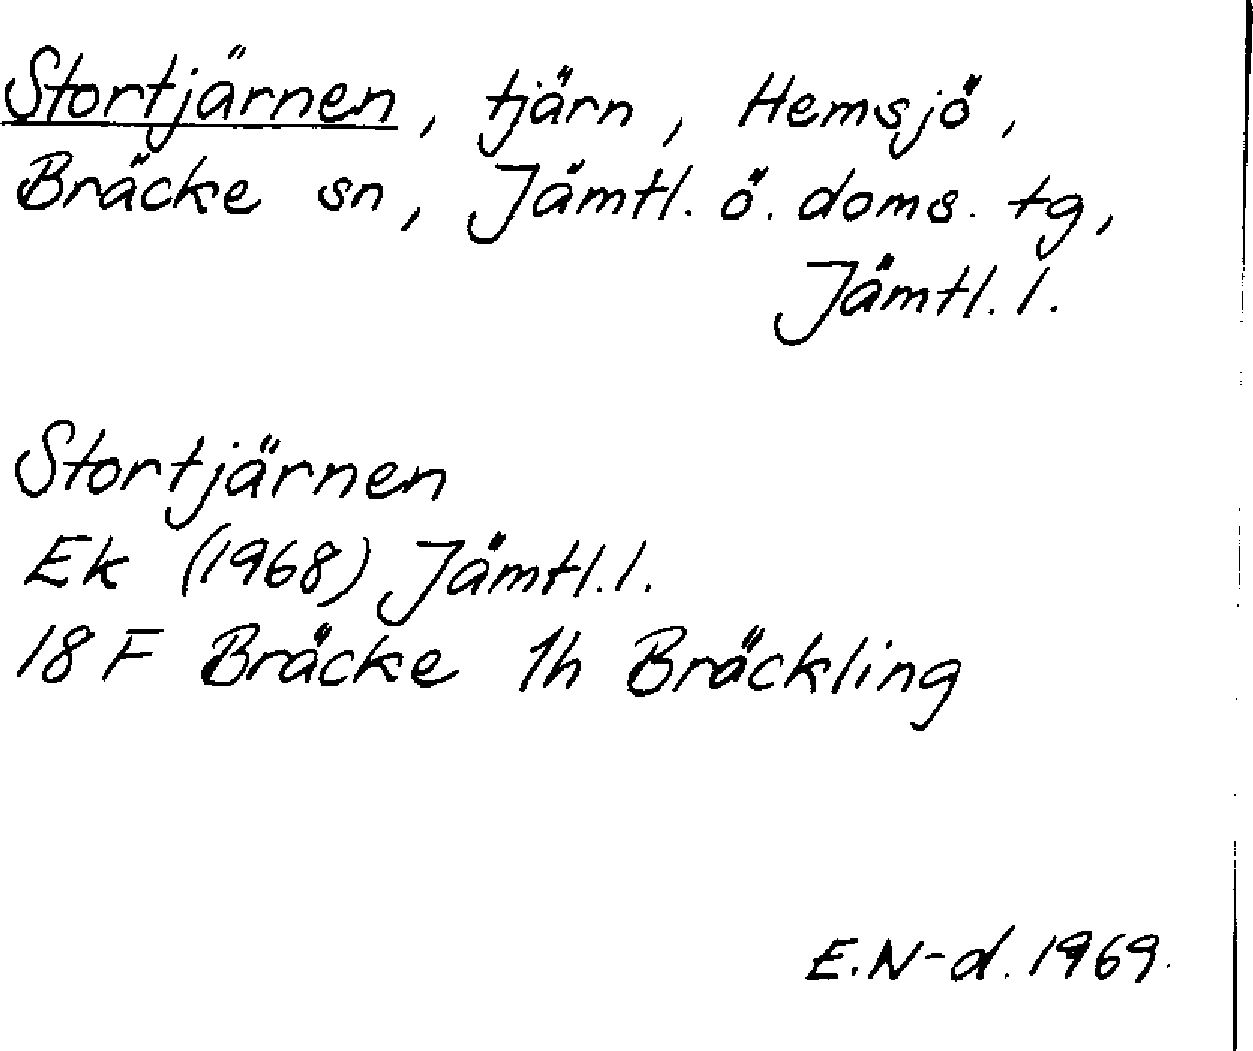 Stortjärnen, tjärn, Hemsjö,
Bräcke sn, Jämtl. ö. doms. tg,
Jämtl. l.
Stortjärnen
Ek (1968) Jämtl. l.
18 F Bräcke 1h Bräckling
E. N-d. 1969.